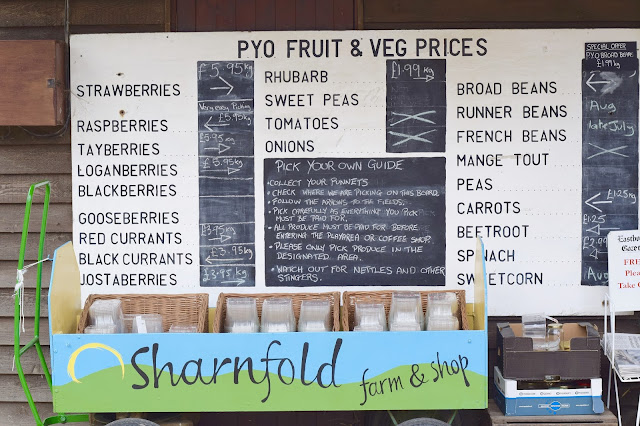 PYO FRUIT & VEG PRICES
STRAWBERRIES
£5.95kg
Very easy Picking
RASPBERRIES
TAYBERRIES
£5.95
LOGANBERRIES
£5.95kg
BLACKBERRIES
GOOSEBERRIES
RED CURRANTS
£3.95kg
BLACK CURRANTS
£3.95kg
JOSTABERRIES
£3.95kg
RHUBARB
£1.99kg
SWEET PEAS
TOMATOES
ONIONS
PICK YOUR OWN GUIDE
• COLLECT YOUR PUNNETS
• CHECK WHERE WE ARE PICKING ON THIS BOARD
• FOLLOW THE ARROWS TO THE FIELDS.
• PICK CAREFULLY AS EVERYTHING YOU PICK
MUST BE PAID FOR.
• ALL PRODUCE MUST BE PAID FOR BEFORE
ENTERING THE PLAYAREA OR COFFEE SHOP.
• PLEASE ONLY PICK PRODUCE IN THE
DESIGNATED AREA.
• WATCH OUT FOR NETTLES AND OTHER
STINGERS.
SPECIAL OFFER
PYO BROAD BEANS
£1.99kg
BROAD BEANS
RUNNER BEANS
Aug
FRENCH BEANS
late July
MANGE TOUT
PEAS
CARROTS
£1.25kg
BEETROOT
£1.25
SPINACH
£2.99
SWEETCORN
Aug
Sharnfold farm & shop
FRE
Pleas
Take O